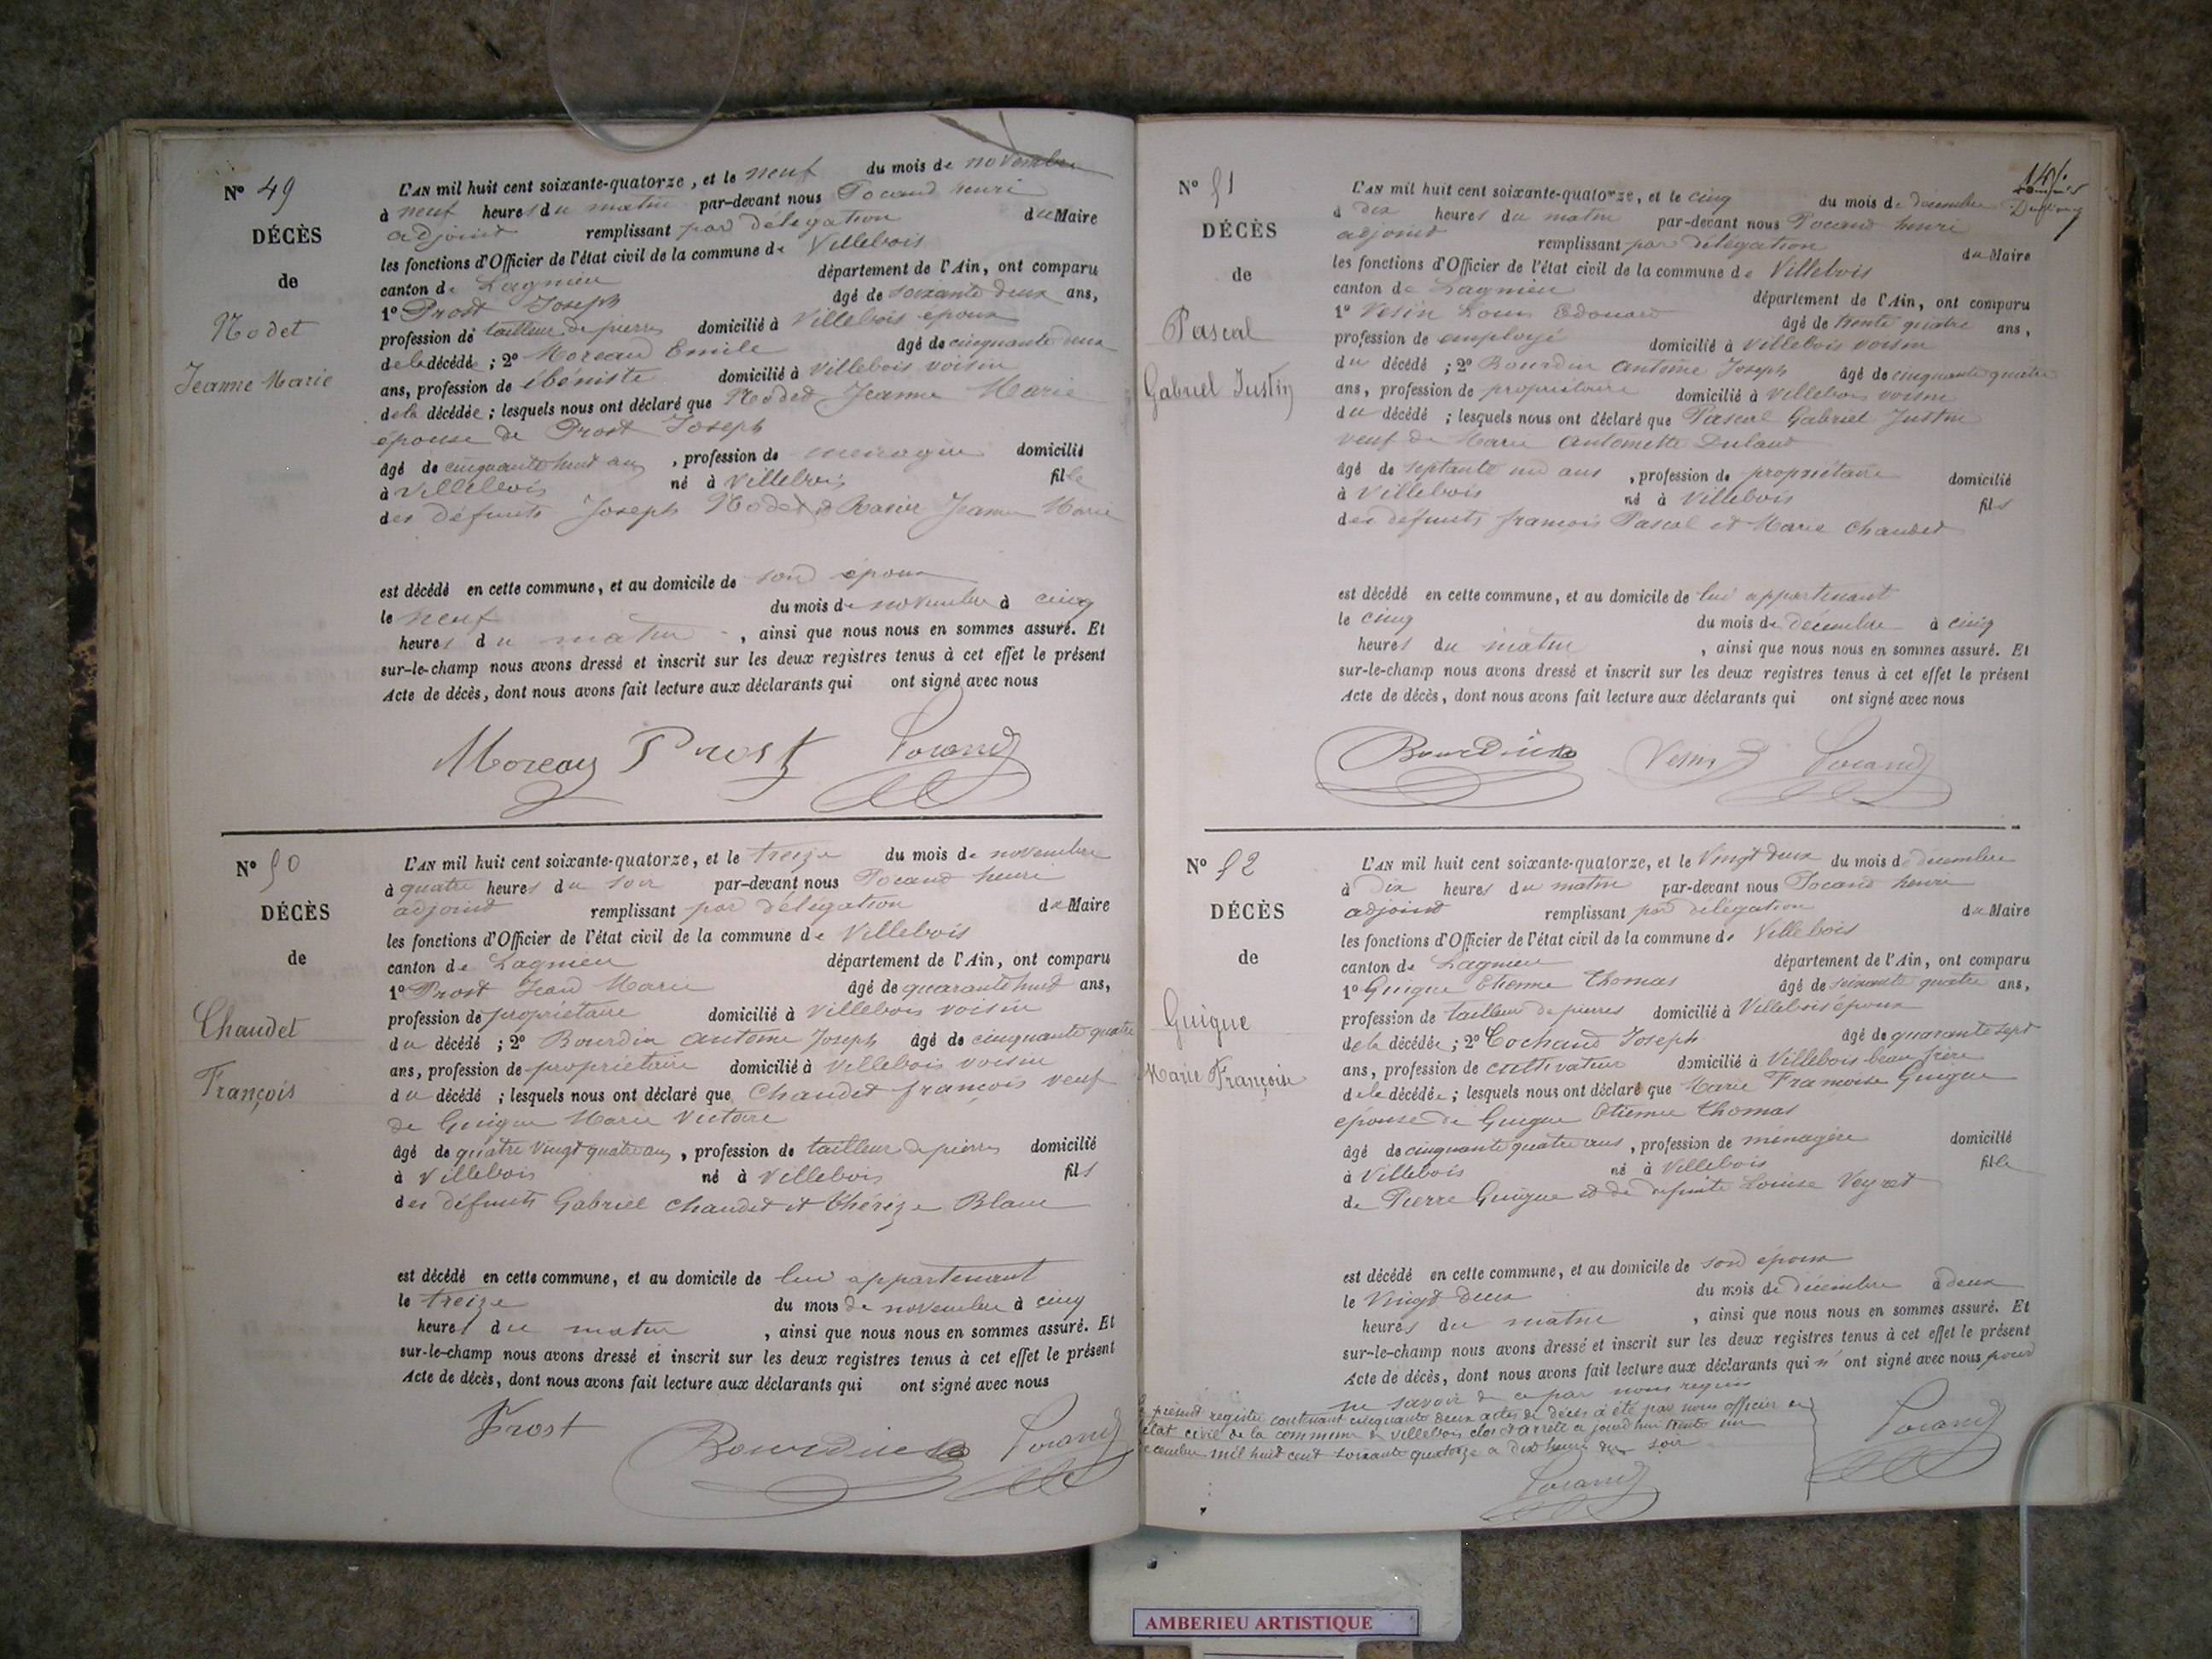 N° 49
DÉCÈS
de
Nodet
Jeanne Marie
L'AN mil huit cent soixante-quatorze, et le neuf du mois de novembre
à neuf heures du matin par-devant nous Pocand henri
adjoint remplissant par délégation du Maire
les fonctions d'Officier de l'état civil de la commune de Villebois
canton de Lagnieu département de l'Ain, ont comparu
1° Prost Joseph âgé de soixante deux ans,
profession de tailleur de pierres domicilié à Villebois époux
de la décédé ; 2° Moreau Emile âgé de cinquante deux
ans, profession de ébéniste domicilié à Villebois voisin
de la décédée ; lesquels nous ont déclaré que Nodet Jeanne Marie
épouse de Prost Joseph
âgé de cinquante huit ans, profession de ménagère domicilié
à Villebois né à Villebois fille
des défunts Joseph Nodet & Jeanne Marie
est décédé en cette commune, et au domicile de son époux
le neuf du mois de novembre à cinq
heures du matin, ainsi que nous nous en sommes assuré. Et
sur-le-champ nous avons dressé et inscrit sur les deux registres tenus à cet effet le présent
Acte de décès, dont nous avons fait lecture aux déclarants qui ont signé avec nous
Moreau Prost Pocand
N° 50
DÉCÈS
de
Chaudet
François
L'AN mil huit cent soixante-quatorze, et le treize du mois de novembre
à quatre heures du soir par-devant nous Pocand henri
adjoint remplissant par délégation du Maire
les fonctions d'Officier de l'état civil de la commune de Villebois
canton de Lagnieu département de l'Ain, ont comparu
1° Prost Jean Marie âgé de quarante huit ans,
profession de propriétaire domicilié à Villebois voisin
du décédé ; 2° Bourdin antoine Joseph âgé de cinquante quatre
ans, profession de propriétaire domicilié à Villebois voisin
du décédé ; lesquels nous ont déclaré que Chaudet françois veuf
de Guigue Marie Victoire
âgé de quatre vingt quatre ans, profession de tailleur de pierres domicilié
à Villebois né à Villebois fils
des défunts Gabriel Chaudet et thérèze Blanc
est décédé en cette commune, et au domicile de lui appartenant
le treize du mois de novembre à cinq
heures du matin, ainsi que nous nous en sommes assuré. Et
sur-le-champ nous avons dressé et inscrit sur les deux registres tenus à cet effet le présent
Acte de décès, dont nous avons fait lecture aux déclarants qui ont signé avec nous
Prost Bourdin Pocand
N° 51
DÉCÈS
de
Pascal
Gabriel Justin
L'AN mil huit cent soixante-quatorze, et le cinq du mois de décembre
à dix heures du matin par-devant nous Pocand henri
adjoint remplissant par délégation du Maire
les fonctions d'Officier de l'état civil de la commune de Villebois
canton de Lagnieu département de l'Ain, ont comparu
1° Vesin Louis Edouard âgé de trente quatre ans,
profession de employé domicilié à Villebois voisin
du décédé ; 2° Bourdin antoine Joseph âgé de cinquante quatre
ans, profession de propriétaire domicilié à Villebois voisin
du décédé ; lesquels nous ont déclaré que Pascal Gabriel Justin
veuf de Marie antoinette
âgé de septante un ans, profession de propriétaire domicilié
à Villebois né à Villebois fils
des défunts françois Pascal et Marie Chaudet
est décédé en cette commune, et au domicile de lui appartenant
le cinq du mois de décembre à cinq
heures du matin, ainsi que nous nous en sommes assuré. Et
sur-le-champ nous avons dressé et inscrit sur les deux registres tenus à cet effet le présent
Acte de décès, dont nous avons fait lecture aux déclarants qui ont signé avec nous
Bourdin Vesin Pocand
N° 52
DÉCÈS
de
Guigue
Marie Françoise
L'AN mil huit cent soixante-quatorze, et le vingt deux du mois de décembre
à dix heures du matin par-devant nous Pocand henri
adjoint remplissant par délégation du Maire
les fonctions d'Officier de l'état civil de la commune de Villebois
canton de Lagnieu département de l'Ain, ont comparu
1° Guigue Etienne thomas âgé de soixante quatre ans,
profession de tailleur de pierres domicilié à Villebois époux
de la décédée ; 2° Cochand Joseph âgé de quarante sept
ans, profession de cultivateur domicilié à Villebois beau frère
de la décédée ; lesquels nous ont déclaré que Marie Françoise Guigue
épouse de Guigue Etienne thomas
âgé de cinquante quatre ans, profession de ménagère domicilié
à Villebois né à Villebois fille
de Pierre Guigue et de défunte Louise Veyret
est décédé en cette commune, et au domicile de son époux
le vingt deux du mois de décembre à deux
heures du matin, ainsi que nous nous en sommes assuré. Et
sur-le-champ nous avons dressé et inscrit sur les deux registres tenus à cet effet le présent
Acte de décès, dont nous avons fait lecture aux déclarants qui n'ont signé avec nous pour
ne savoir de ce par nous requis
présent registre contenant cinquante deux actes de décès a été par nous officier de
état civil de la commune de Villebois clos et arrêté ce jourd'hui trente un
décembre mil huit cent soixante quatorze a dix heures du soir
Pocand
Pocand
AMBERIEU ARTISTIQUE